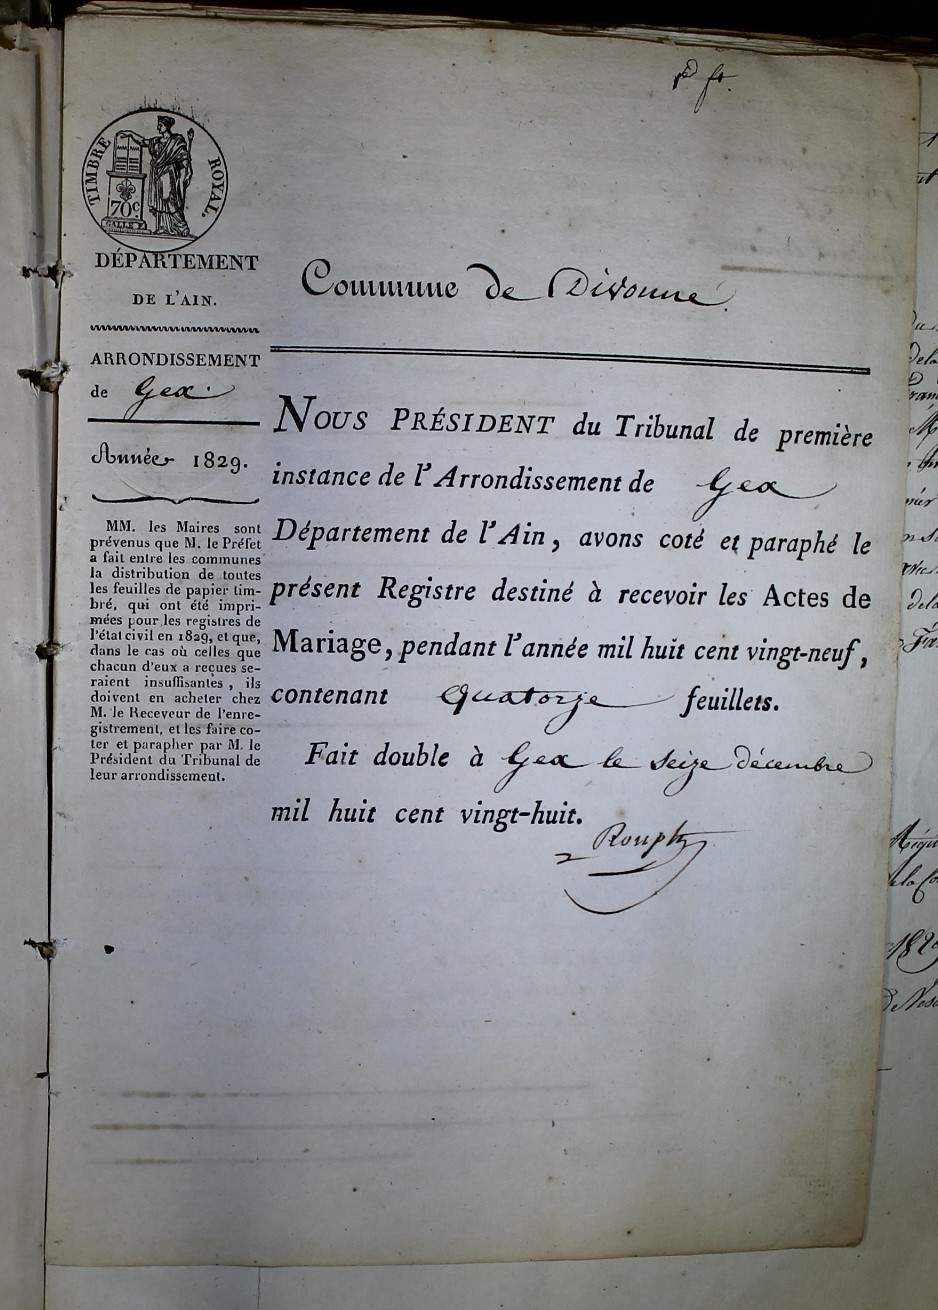 TIMBRE ROYAL.
70c
DÉPARTEMENT
DE L'AIN.
ARRONDISSEMENT
de Gex.
Année 1829.
MM. les Maires sont
prévenus que M. le Préfet
a fait entre les communes
la distribution de toutes
les feuilles de papier tim-
bré, qui ont été impri-
mées pour les registres de
l'état civil en 1829, et que,
dans le cas où celles que
chacun d'eux a reçues se-
raient insuffisantes, ils
doivent en acheter chez
M. le Receveur de l'enre-
gistrement, et les faire co-
ter et parapher par M. le
Président du Tribunal de
leur arrondissement.
Commune de Divonne.
NOUS PRÉSIDENT du Tribunal de première
instance de l'Arrondissement de Gex
Département de l'Ain, avons coté et paraphé le
présent Registre destiné à recevoir les Actes de
Mariage, pendant l'année mil huit cent vingt-neuf,
contenant quatorze feuillets.
Fait double à Gex le seize décembre
mil huit cent vingt-huit.